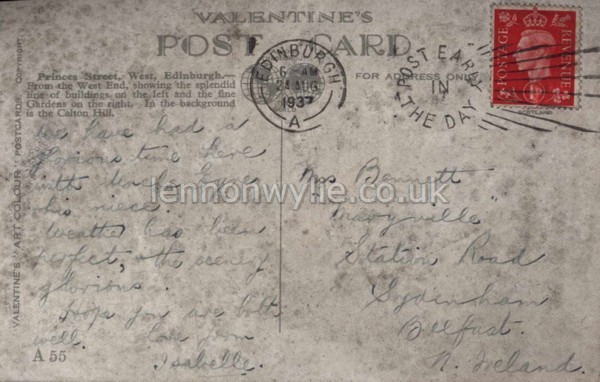 VALENTINE'S
POST CARD
Princes Street, West, Edinburgh.—
From the West End, showing the splendid
line of buildings on the left and the fine
Gardens on the right. In the background
is the Calton Hill.
FOR ADDRESS ONLY
EDINBURGH
6 - AM
24 AUG
1937
A
POST EARLY
IN
THE DAY
POSTAGE
REVENUE
VALENTINE'S "ART COLOUR" POSTCARDS Copyright
We have had a
glorious time here
with
his niece.
Weather has been
perfect, the scenery
glorious.
Hope you are both
well. Love from
Isabelle.
A 55
Mrs Bennett
"Maryville"
Station Road
Sydenham
Belfast.
N. Ireland.
lennonwylie.co.uk